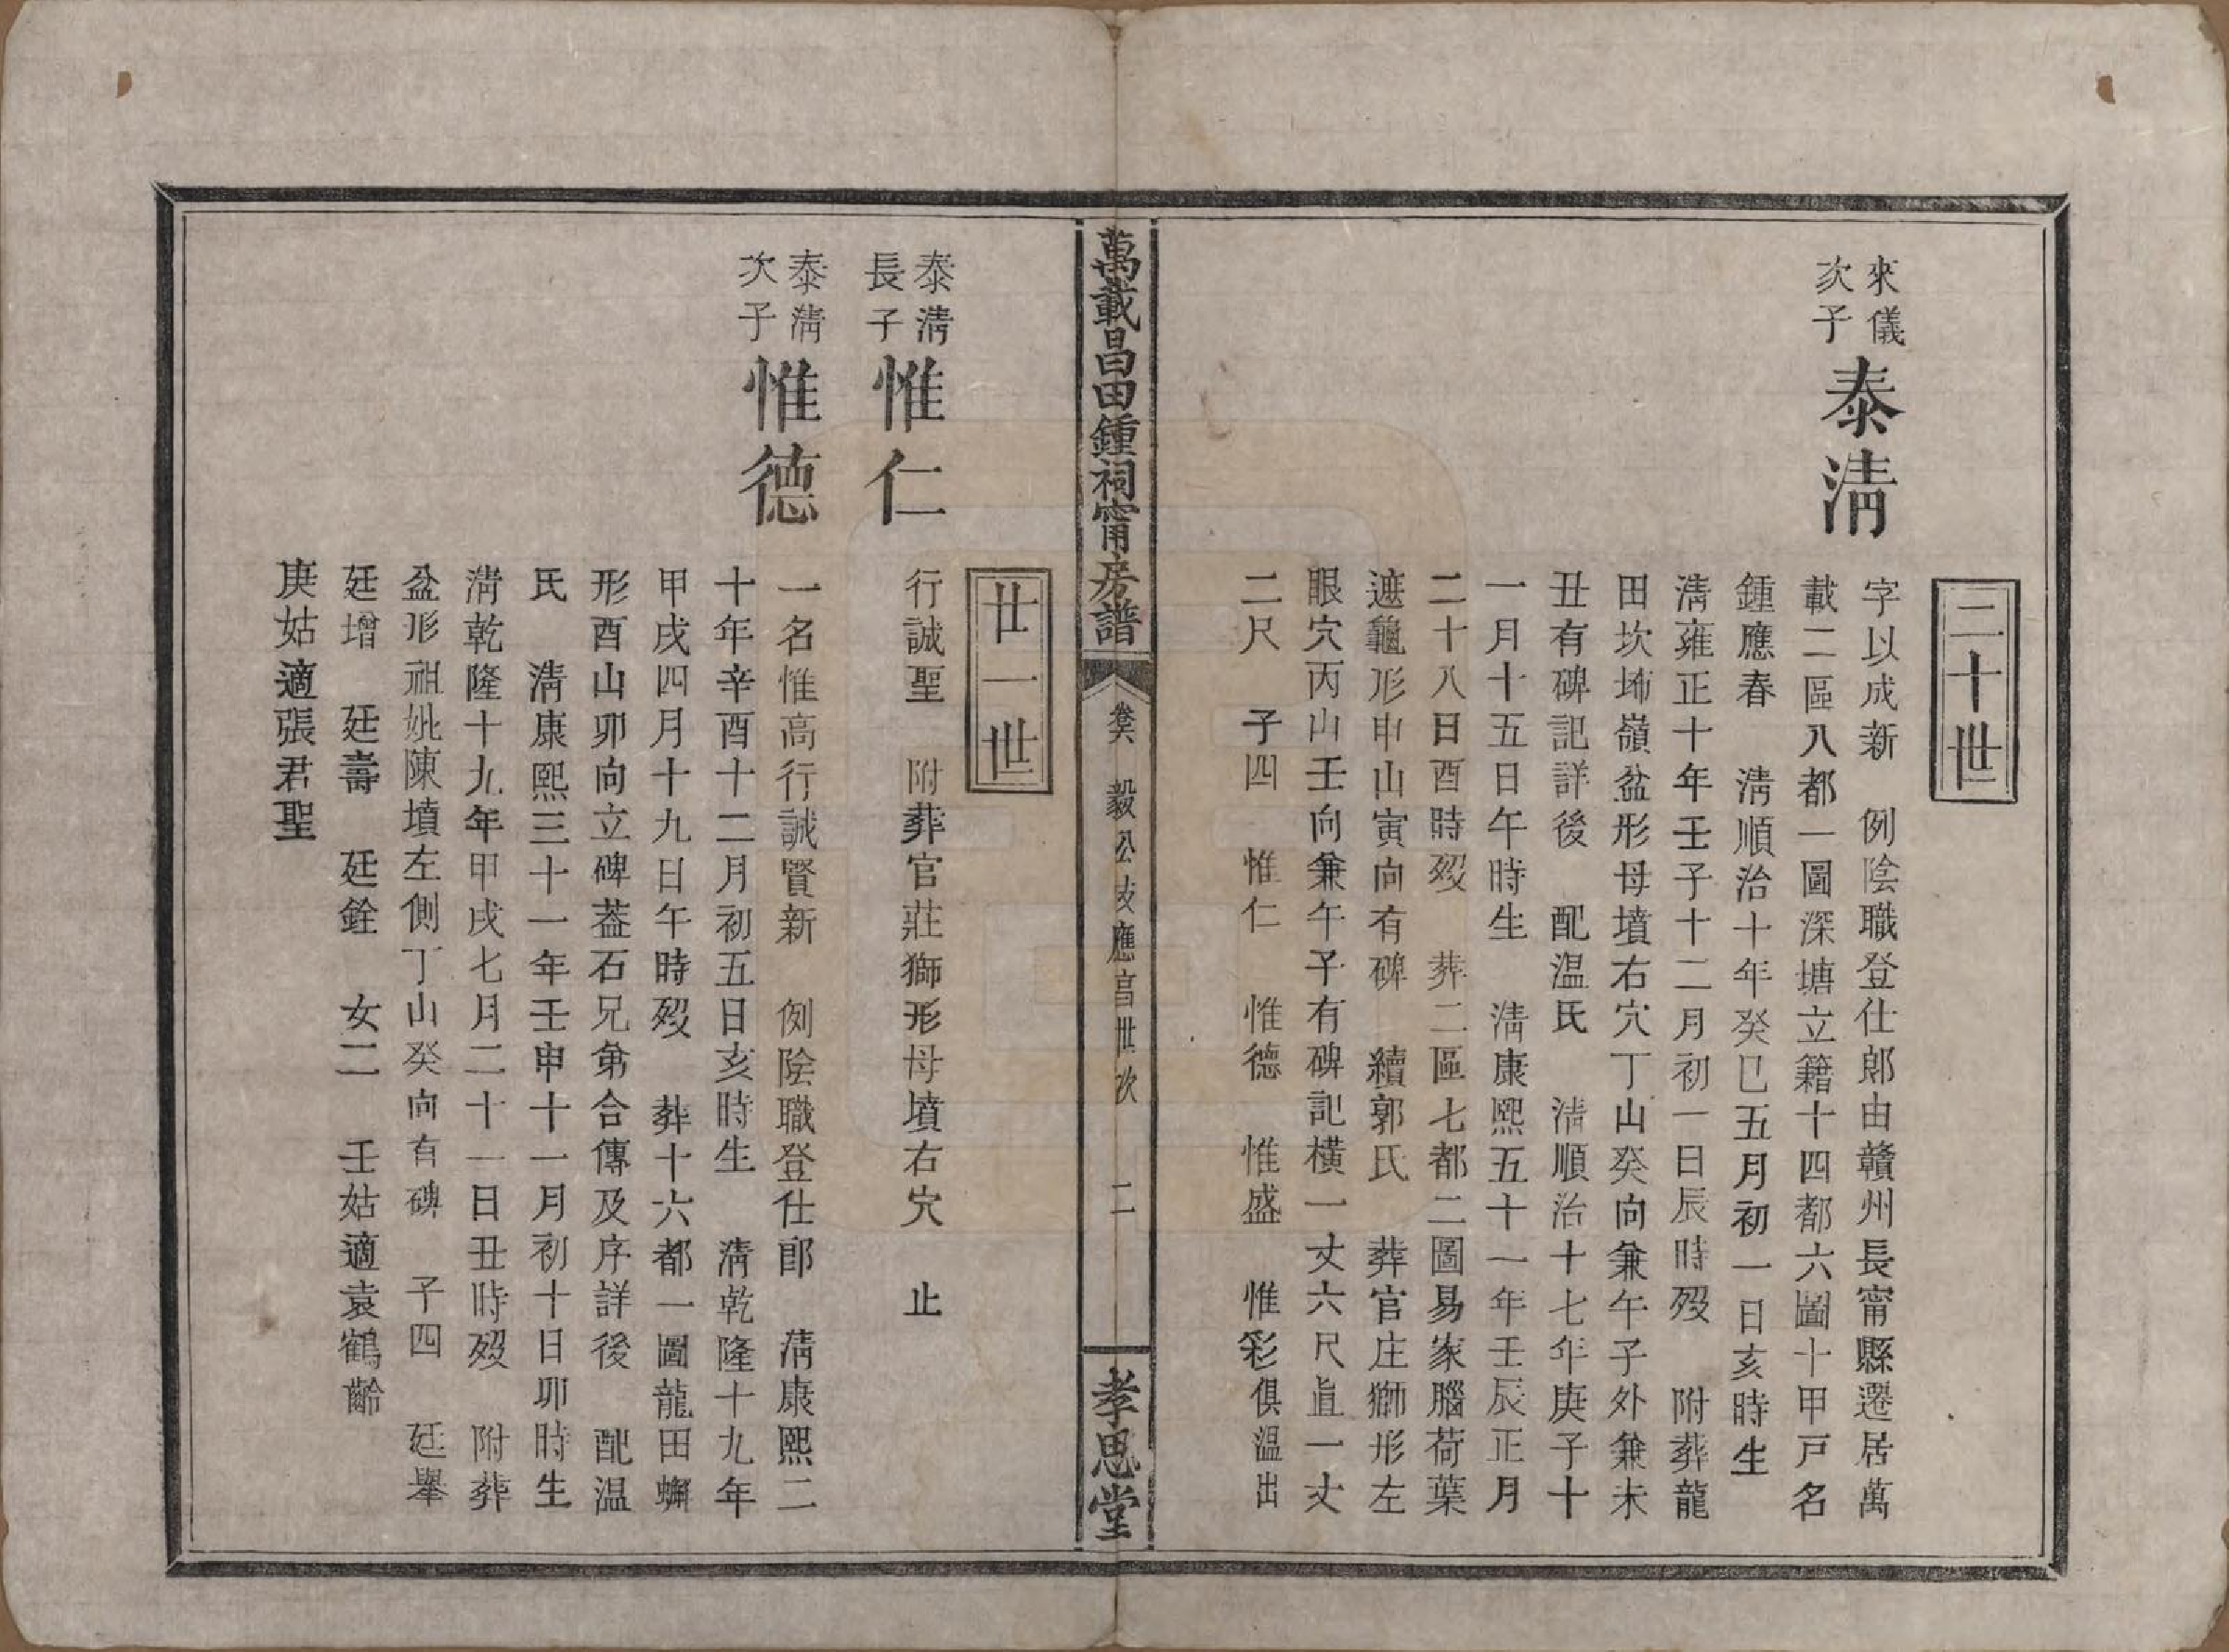 二十世
來儀
次子
泰淸
字以成新　例陰職登仕郎由贛州長甯縣遷居萬
載二區八都一圖深塘立籍十四都六圖十甲戸名
鍾應春　淸順治十年癸巳五月初一日亥時生
淸雍正十年壬子十二月初一日辰時歿　附葬龍
田坎㘵嶺盆形母墳右穴丁山癸向兼午子外兼未
丑有碑記詳後　配温氏　淸順治十七年庚子十
一月十五日午時生　淸康熙五十一年壬辰正月
二十八日酉時歿　葬二區七都二圖易家腦荷葉
遮龜形申山寅向有碑　續郭氏　葬官庄獅形左
眼穴丙山壬向兼午子有碑記橫一丈六尺直一丈
二尺　子四　惟仁　惟德　惟盛　惟彩俱溫出
萬載昌田鍾祠甯房譜
卷六　毅公支應昌世次　二
孝思堂
廿一世
泰淸
長子
惟仁
行誠聖　附葬官莊獅形母墳右穴　止
泰淸
次子
惟德
一名惟高行誠賢新　例陰職登仕郎　淸康熙二
十年辛酉十二月初五日亥時生　淸乾隆十九年
甲戌四月十九日午時歿　葬十六都一圖龍田螄
形酉山卯向立碑葢石兄弟合傳及序詳後　配温
氏　淸康熙三十一年壬申十一月初十日卯時生
淸乾隆十九年甲戌七月二十一日丑時歿　附葬
盆形祖妣陳墳左側丁山癸向有碑　子四　廷舉
廷增　廷壽　廷銓　女二　壬姑適袁鶴齡
庚姑適張君聖